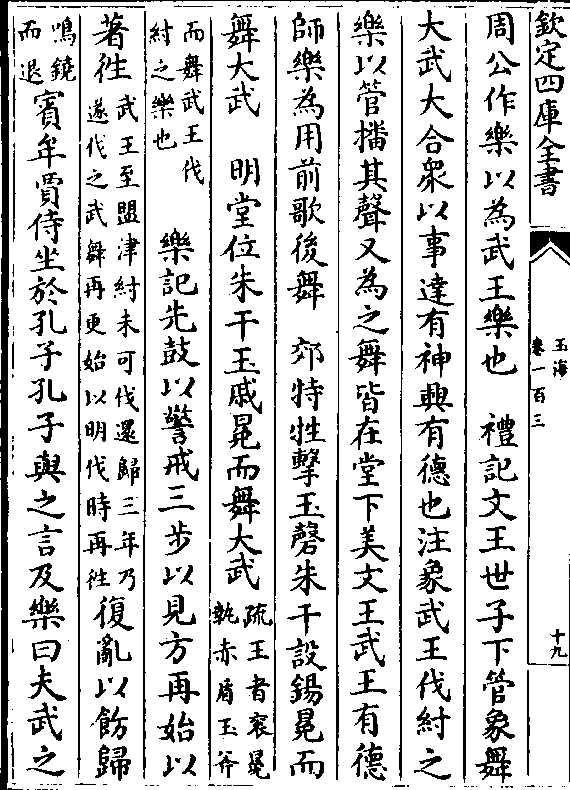 欽定四庫全書
玉海
卷一百三
十九
周公作樂以為武王樂也　禮記文王世子下管象舞
大武大合衆以事達有神興有德也注象武王伐紂之
樂以管播其聲又為之舞皆在堂下美文王武王有德
師樂為用前歌後舞　郊特牲擊玉磬朱干設錫冕而
舞大武　明堂位朱干玉戚冕而舞大武
疏王者衮冕
執赤盾玉斧
而舞武王伐
紂之樂也
樂記先鼓以警戒三步以見方再始以
著徃
武王至盟津紂未可伐還歸三年乃
遂伐之武舞再更始以明伐時再徃
復亂以飭歸
鳴鐃
而退
賓牟賈侍坐於孔子孔子與之言及樂曰夫武之